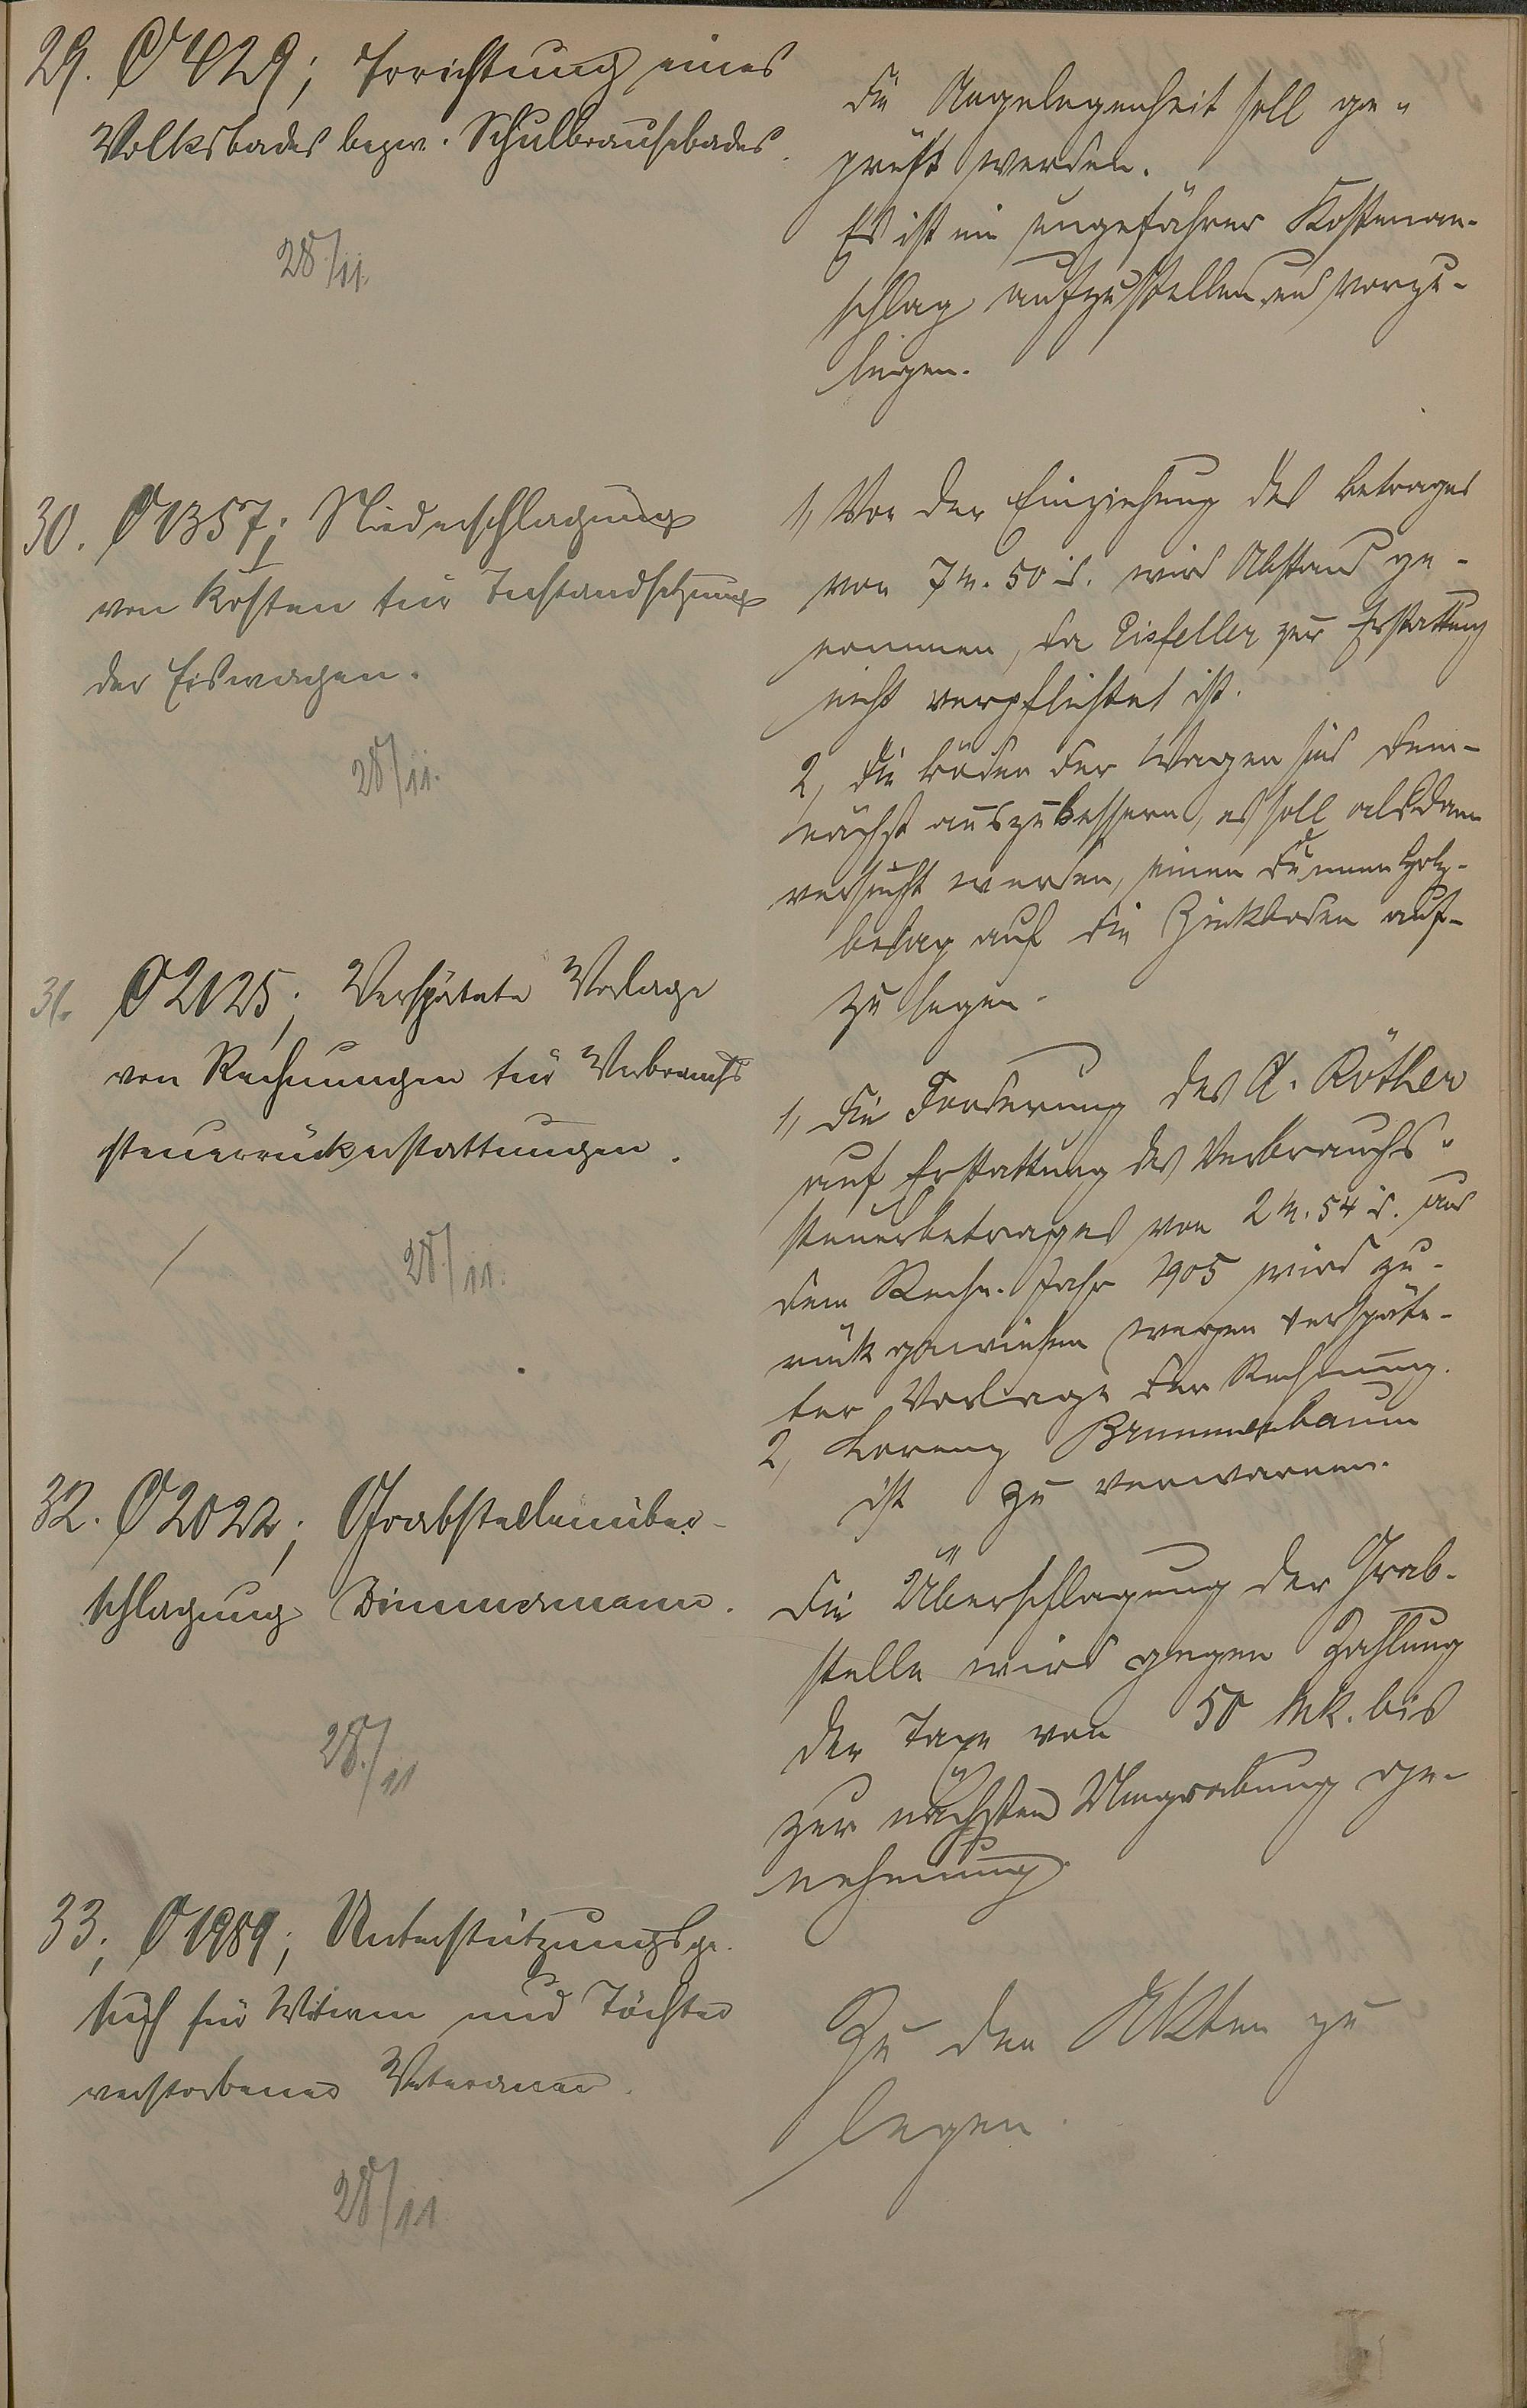 29. O 429; Errichtung eines
Volksbades bezw. Schulbrausebades.
28/11.
Die Angelegenheit soll ge-
prüft werden.
Es ist ein ungefährer Kostenan-
schlag aufzustellen und vorzu-
legen.
30. O 1357; Niederschlagung
von Kosten für Instandsetzung
der Eiswagen.
28/11.
1, Von der Einziehung des Betrages
von 7 M. 50 d. wird Abstand ge-
nommen, da Eisfeller zur Erstattung
nicht verpflichtet ist.
2, Die Böden der Wagen sind dem-
nächst auszubessern, es soll alsdann
versucht werden, einen dünnen Holz-
belag auf die Zinkboden auf-
zu legen.
31. O 2125; Verspätete Vorlage
von Rechnungen für Verbrauchs
steuerrückerstattungen.
28/11.
1, Die Forderung des A. Röther
auf Erstattung des Verbrauchs-
steuerbetrages von 2 M. 54 d. aus
dem Rechn. Jahr 1905 wird zu-
rückgewiesen wegen verspäte-
ter Vorlage der Rechnung.
2, Lorenz Brummerbaum
ist zu verwarnen.
32. O 2022; Grabstellenüber-
schlagung Zimmermann.
28/11
Die Überschlagung der Grab-
stelle wird gegen Zahlung
der Taxe von 50 Mk. bis
zur nächsten Umgrabung ge-
nehmigt.
33; O 1989; Unterstützungsge-
such für Witwen und Töchter
verstorbener Veteranen.
28/11
Zu den Akten zu
legen.